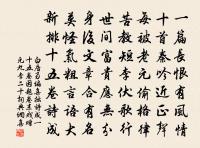 一篇長恨有風情
十首秦吟近正聲
每被老元偷格律
苦教短李伏歌行
世間富貴應無分
身後文章合有名
莫怪氣粗言語大
新排十五卷詩成
白居易編集拙詩成一
十五卷因題卷末戲贈
元九李二十詞典網集